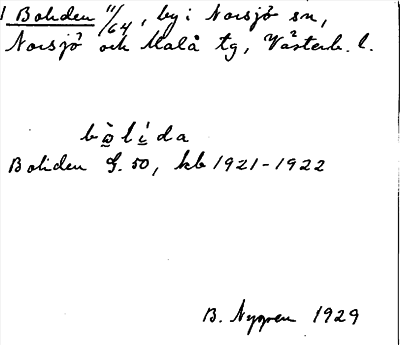 1 Boliden 11/64, by i Norsjö sn,
Norsjö och Malå tg, Västerb. l.
bòlída
Boliden S. 50, kb 1921-1922
B. Nygren 1929